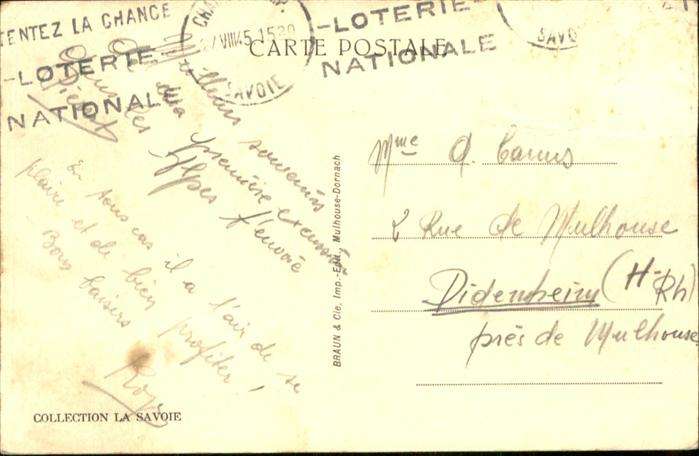 TENTEZ LA CHANCE
-LOTERIE-
NATIONALE
15 30
SAVOIE
-LOTERIE-
NATIONALE
SAVO
CARTE POSTALE
Meilleurs souvenirs
de sa première excursion
dans les Alpes t'envoie
En tous cas il a l'air de se
plaire et de bien profiter,
Bons baisers
BRAUN & Cie, Imp.-Edit., Mulhouse-Dornach
Mme
2 Rue de Mulhouse
Didenheim (H-Rh)
près de Mulhouse
COLLECTION LA SAVOIE